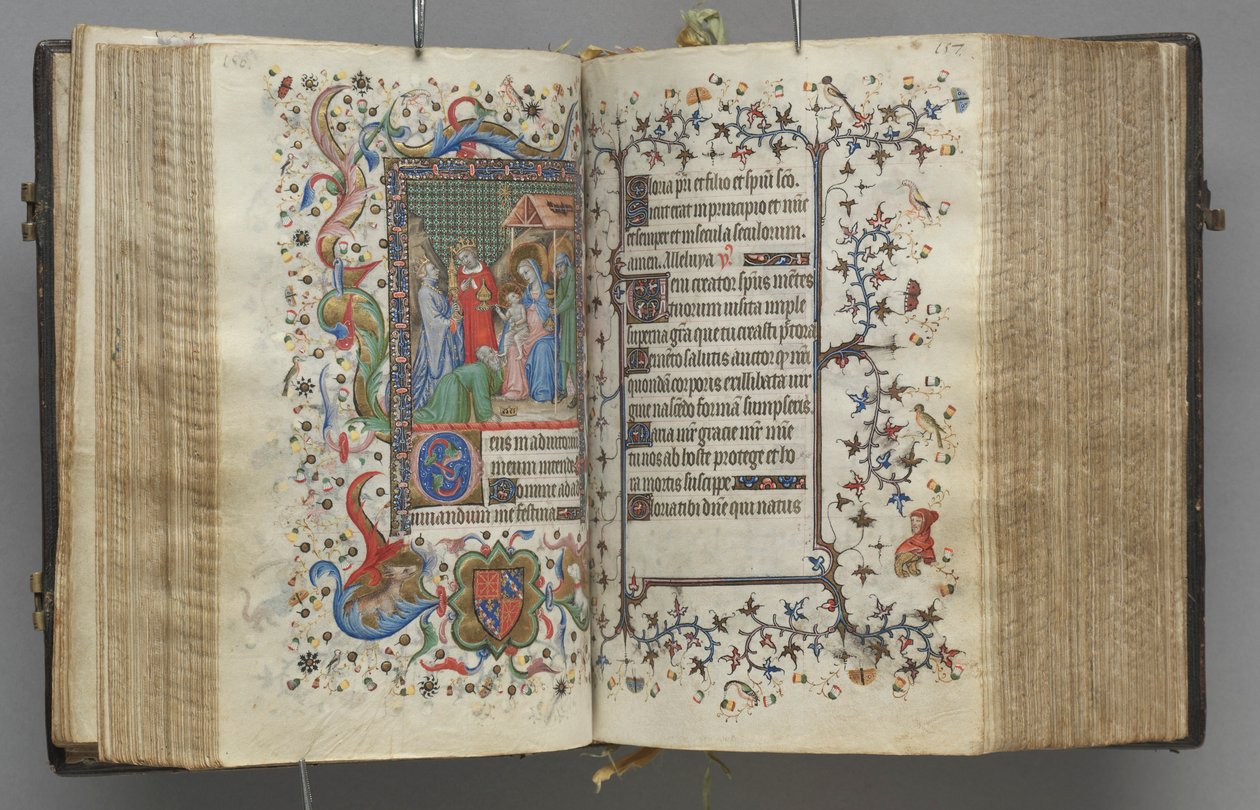 156.
eus in adiutoriu
meum intende
Domine ad ad
iuuandum me festina
157.
Gloria pri et filio et spiui sco.
Sicut erat in principio et nunc
et semper et in secula seculorum.
amen. Alleluya
Ueni creator spus mentes
tuorum uisita imple
superna gra que tu creasti pctora
Memento salutis auctor q nri
quondam corporis ex illibata uir
gine nascendo formam sumpseris.
Maria mr gracie mr mie
tu nos ab hoste protege et ho
ra mortis suscippe
Gloria tibi dne qui natus